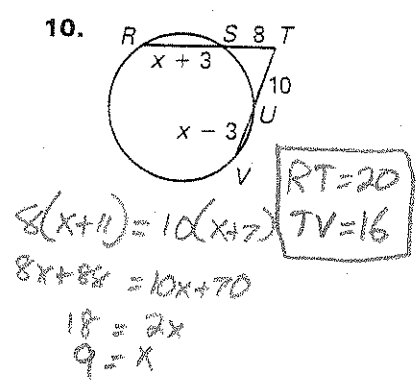 10.
R S 8 T
x + 3
10
U
x − 3
V
RT=20
TV=16
8(x+11)=10(x+7)
8x+88 =10x+70
18 = 2x
9 = x